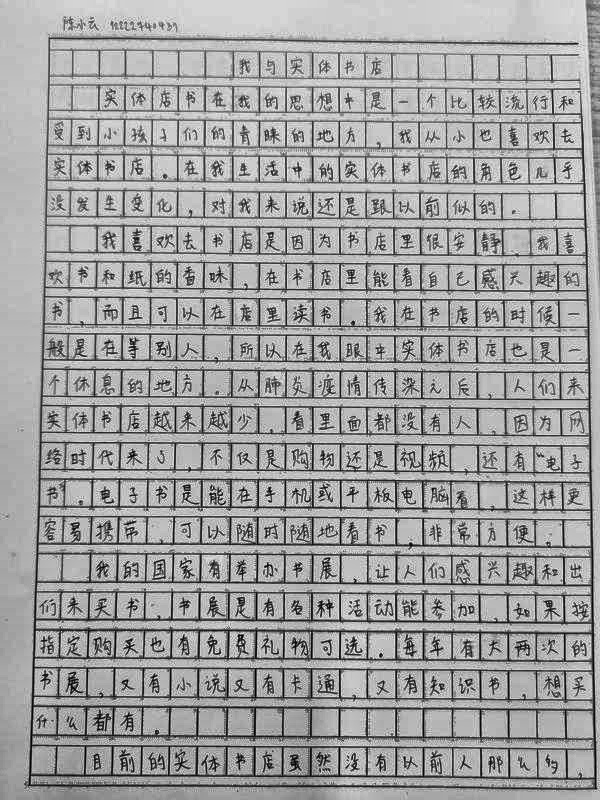 陈小云 12222440439
我与实体书店
实体店书在我的思想中是一个比较流行和
受到小孩子们的青睐的地方，我从小也喜欢去
实体书店。在我生活中的实体书店的角色几乎
没发生变化，对我来说还是跟以前似的。
我喜欢去书店是因为书店里很安静，我喜
欢书和纸的香味，在书店里能看自己感兴趣的
书，而且可以在店里读书。我在书店的时候一
般是在等别人，所以在我眼中实体书店也是一
个休息的地方。从肺炎疫情传深之后，人们来
实体书店越来越少，看里面都没有人，因为网
络时代来了，不仅是购物还是视频，还有“电子
书”。电子书是能在手机或平板电脑看，这样更
容易携带，可以随时随地看书，非常方便。
我的国家有举办书展，让人们感兴趣和出
们来买书，书展是有各种活动能参加，如果按
指定购买也有免费礼物可选。每年有大两次的
书展，又有小说又有卡通，又有知识书，想买
什么都有。
目前的实体书店虽然没有以前人那么多，